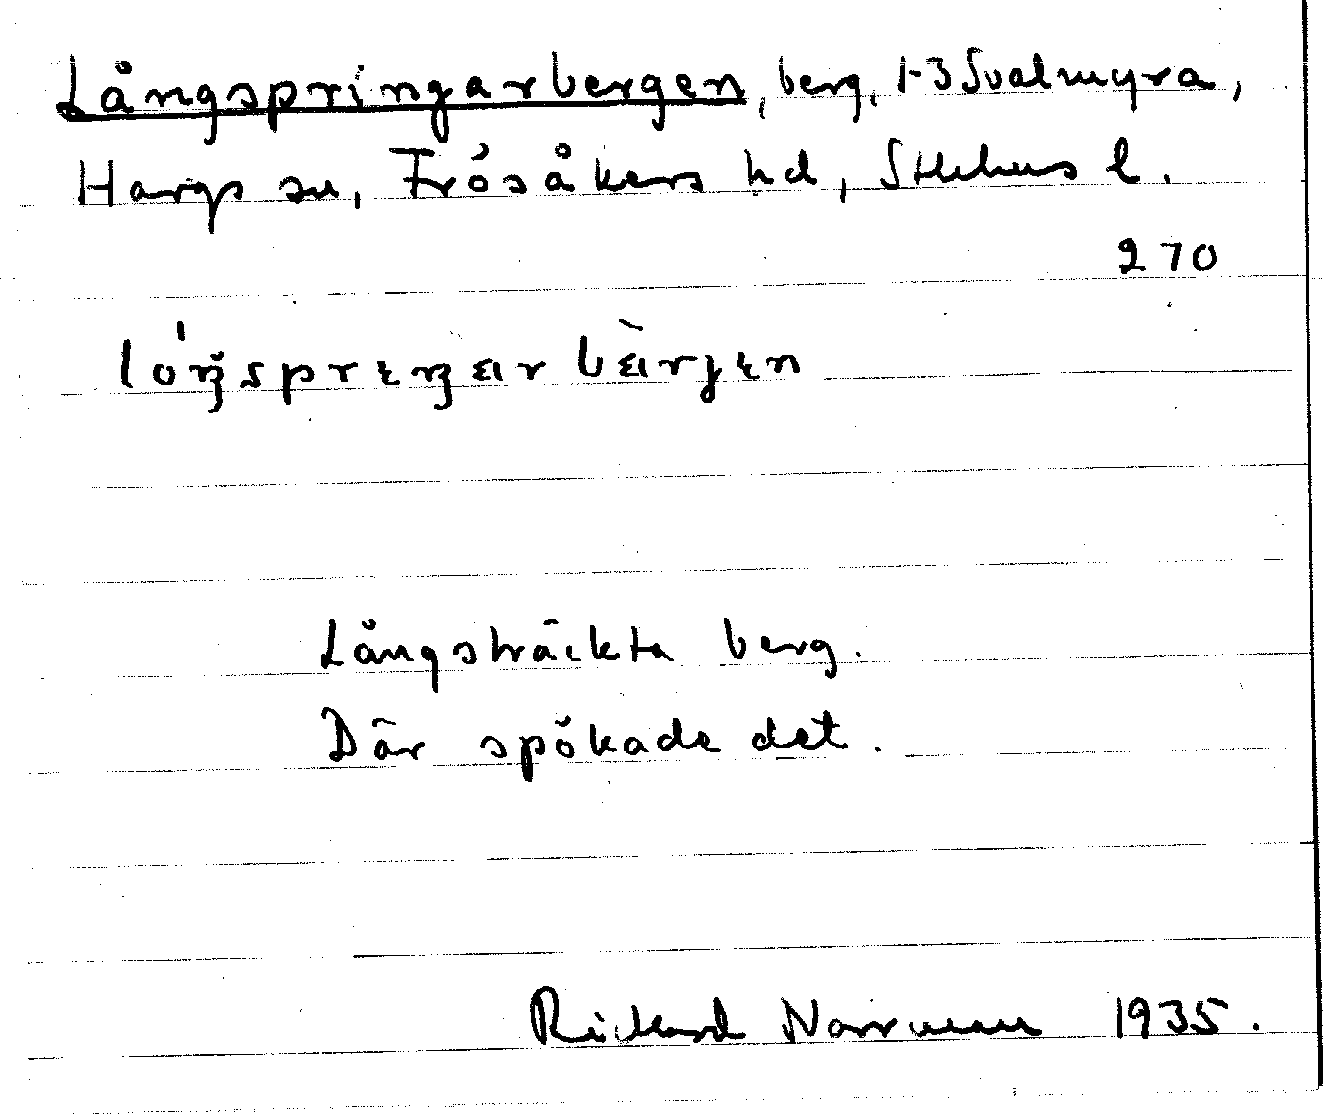 Långspringarbergen, berg, 1-3 Svalmyra,
Hargs sn, Frösåkers hd, Sthlms l.
270
Långsträckta berg.
Där spökade det.
Rickard Norrman 1935.